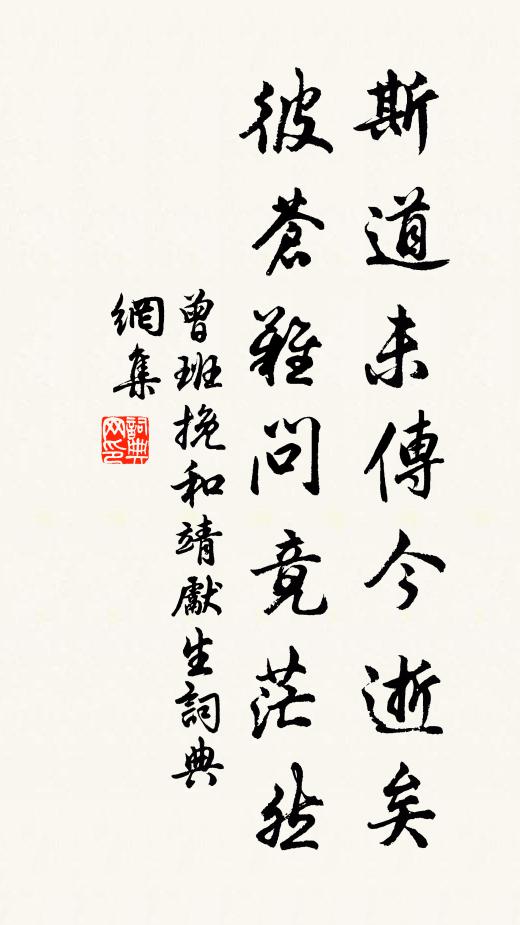 斯道未傳今逝矣
彼蒼難問竟茫然
曾班挽和靖獻生詞典
網集
詞典網印